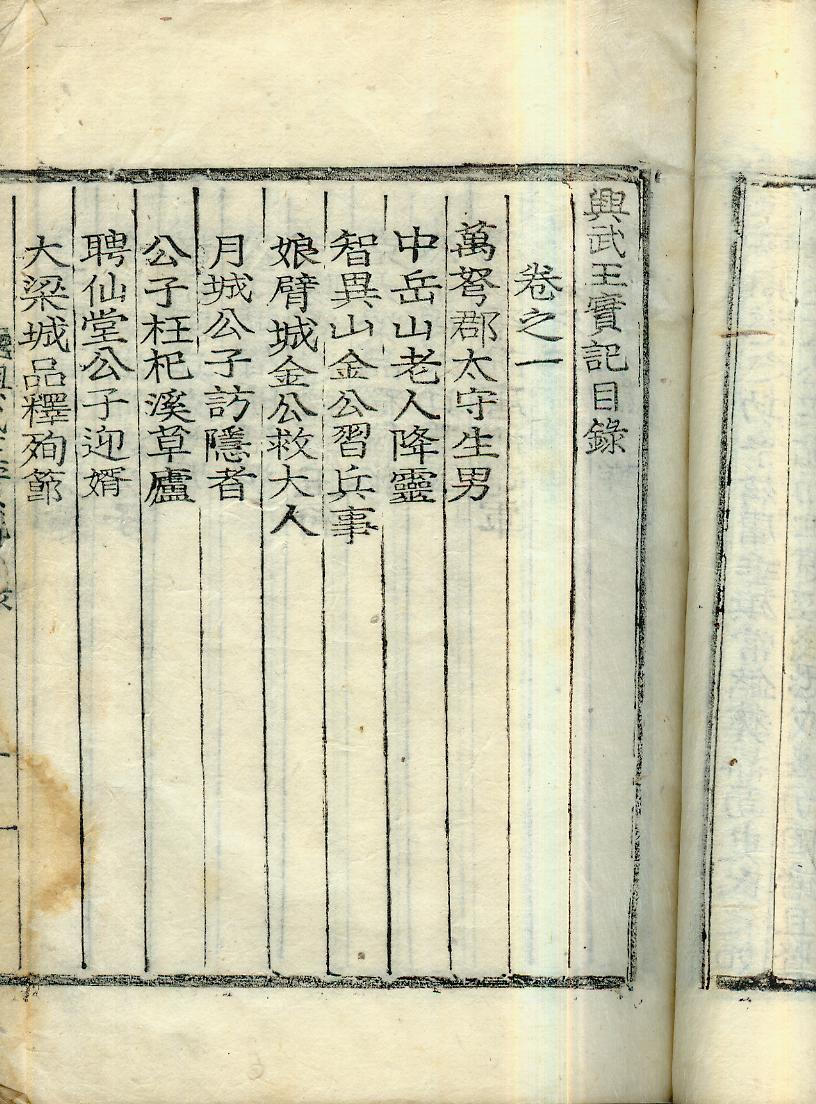 興武王實記目錄
卷之一
萬弩郡太守生男
中岳山老人降靈
智異山金公習兵事
娘臂城金公救大人
月城公子訪隱者
公子枉杞溪草廬
聘仙堂公子迎婿
大梁城品釋殉節